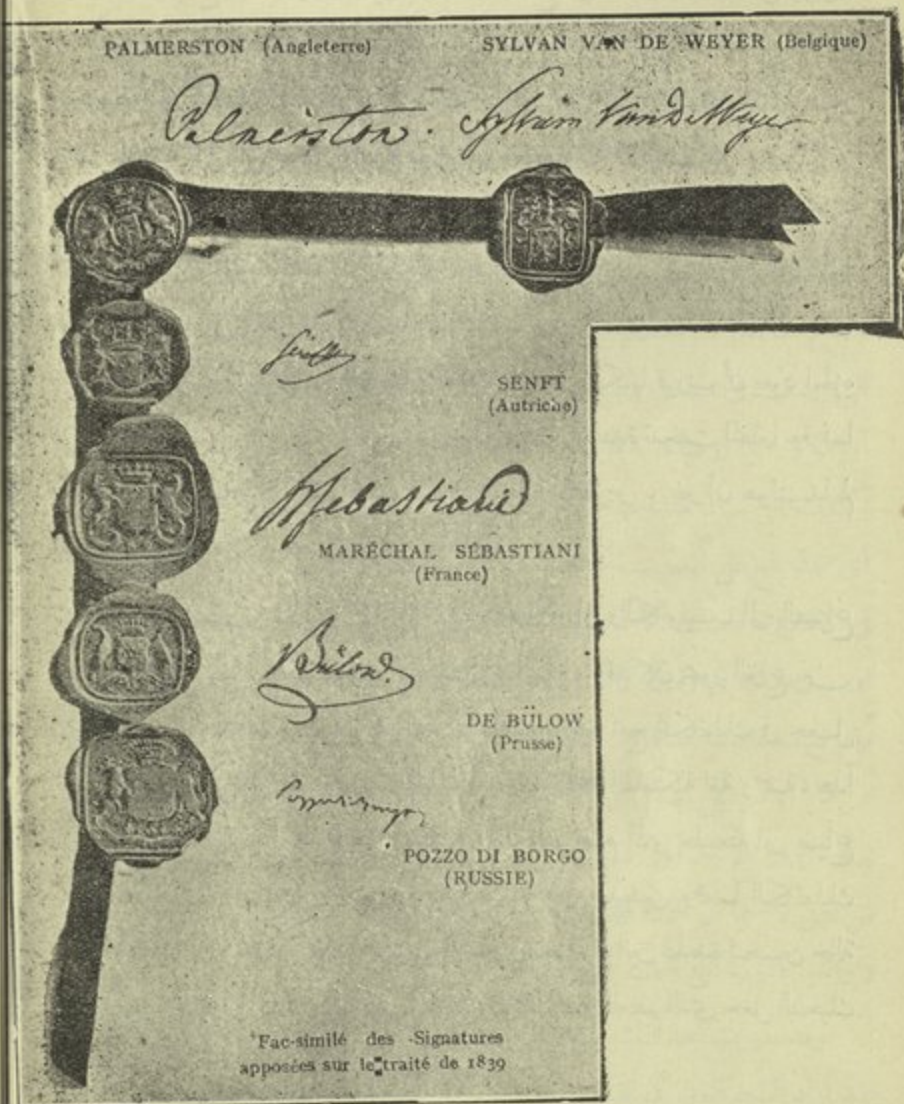 PALMERSTON (Angleterre)
SYLVAN VAN DE WEYER (Belgique)
Palmerston. Sylvain Van De Weyer
Senfft
SENFT
(Autriche)
HSebastiani
MARÉCHAL SÉBASTIANI
(France)
Bülow.
DE BÜLOW
(Prusse)
Pozzo di Borgo
POZZO DI BORGO
(RUSSIE)
Fac-similé des Signatures
apposées sur le traité de 1839